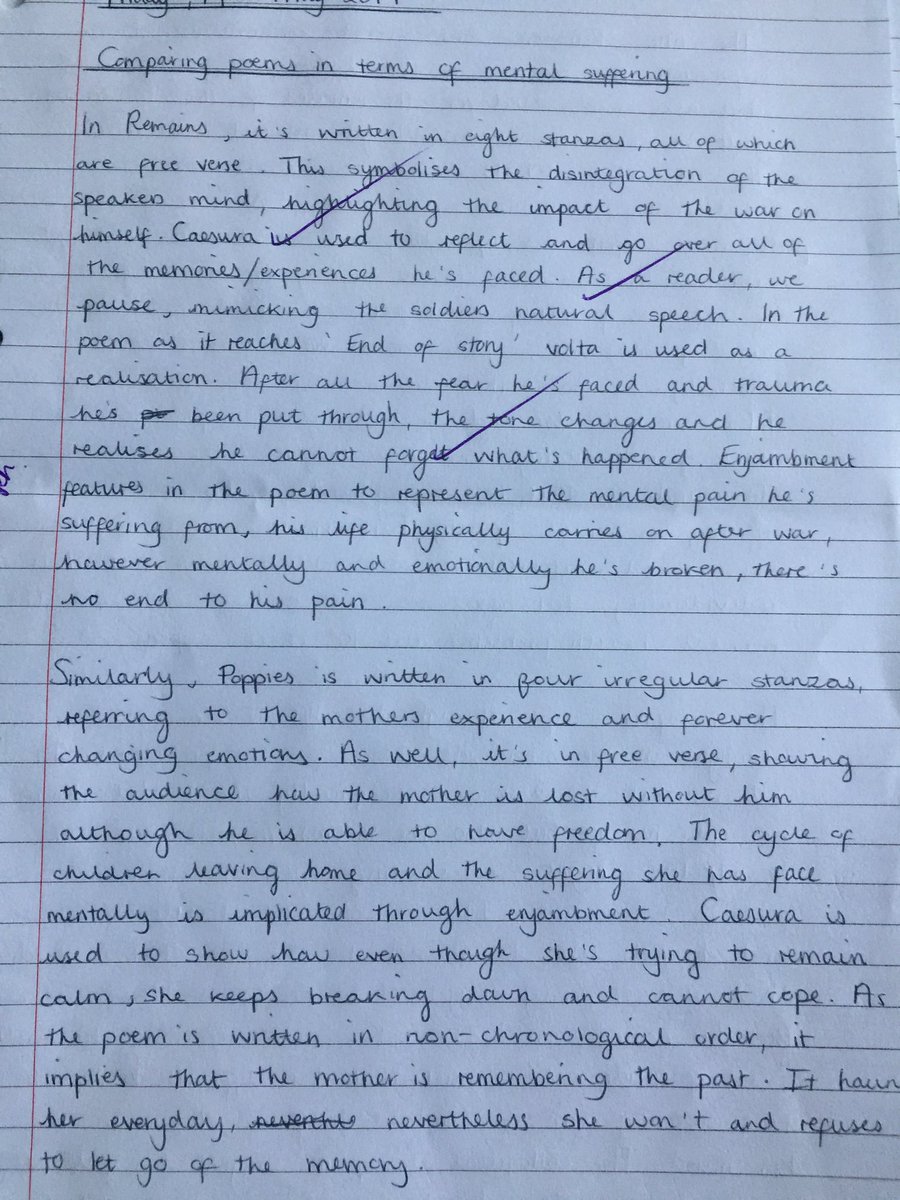 Comparing poems in terms of mental suffering
In Remains, it's written in eight stanzas, all of which
are free verse. This symbolises the disintegration of the
speakers mind, highlighting the impact of the war on
himself. Caesura is used to reflect and go over all of
the memories/experiences he's faced. As a reader, we
pause, mimicking the soldiers natural speech. In the
poem as it reaches 'End of story' volta is used as a
realisation. After all the fear he's faced and trauma
he's been put through, the tone changes and he
realises he cannot forget what's happened. Enjambment
features in the poem to represent the mental pain he's
suffering from, his life physically carries on after war,
however mentally and emotionally he's broken, there's
no end to his pain.
Similarly, Poppies is written in four irregular stanzas,
referring to the mothers experience and forever
changing emotions. As well, it's in free verse, showing
the audience how the mother is lost without him
although he is able to have freedom. The cycle of
children leaving home and the suffering she has face
mentally is implicated through enjambment. Caesura is
used to show how even though she's trying to remain
calm, she keeps breaking down and cannot cope. As
the poem is written in non-chronological order, it
implies that the mother is remembering the past. It haun
her everyday, nevertheless she won't and refuses
to let go of the memory.